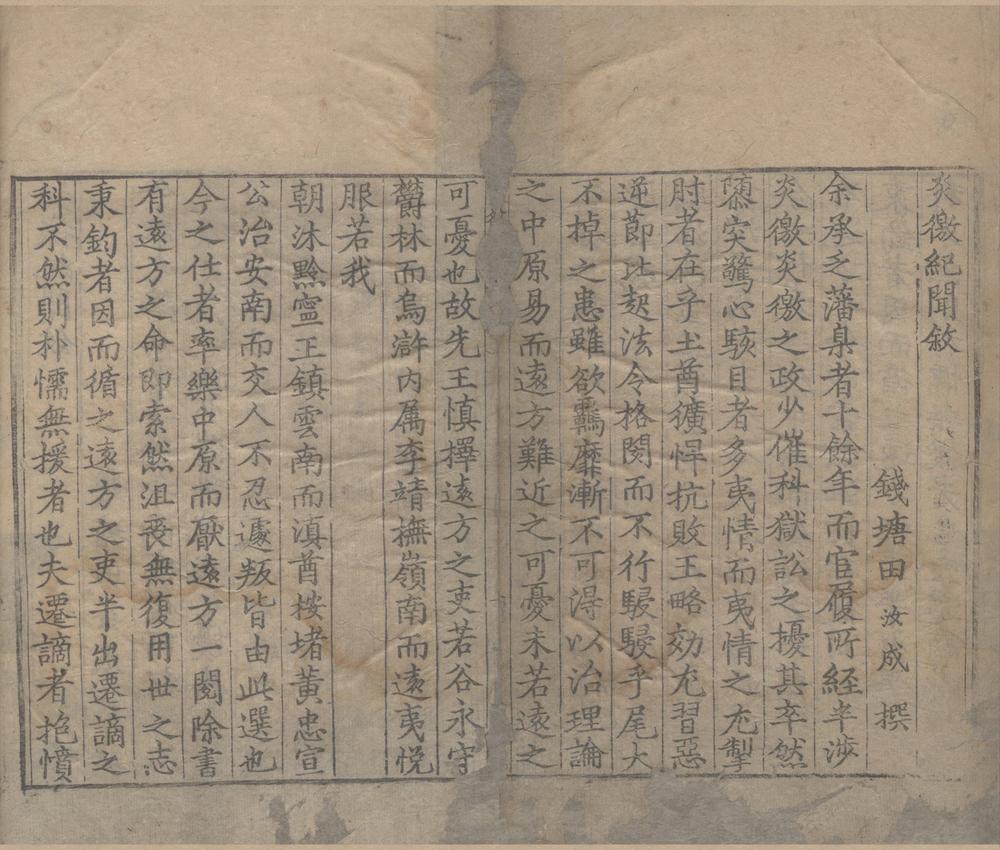 炎徼紀聞敘
錢塘田汝成撰
余承乏藩臬者十餘年而官履所經半涉
炎徼炎徼之政少催科獄訟之擾其卒然
隳突驚心駭目者多夷情而夷情之尤掣
肘者在乎土酋獷悍抗敗王略効尤習惡
逆節比起法令格閡而不行駸駸乎尾大
不掉之患雖欲羈靡漸不可得以治理論
之中原易而遠方難近之可憂未若遠之
可憂也故先王慎擇遠方之吏若谷永守
鬱林而烏滸內属李靖撫嶺南而遠夷悅
服若我
朝沐黔寧王鎮雲南而滇酋按堵黃忠宣
公治安南而交人不忍遽叛皆由此選也
今之仕者率樂中原而厭遠方一閱除書
有遠方之命即索然沮喪無復用世之志
秉鈞者因而循之遠方之吏半出遷謫之
科不然則朴懦無援者也夫遷謫者抱憤